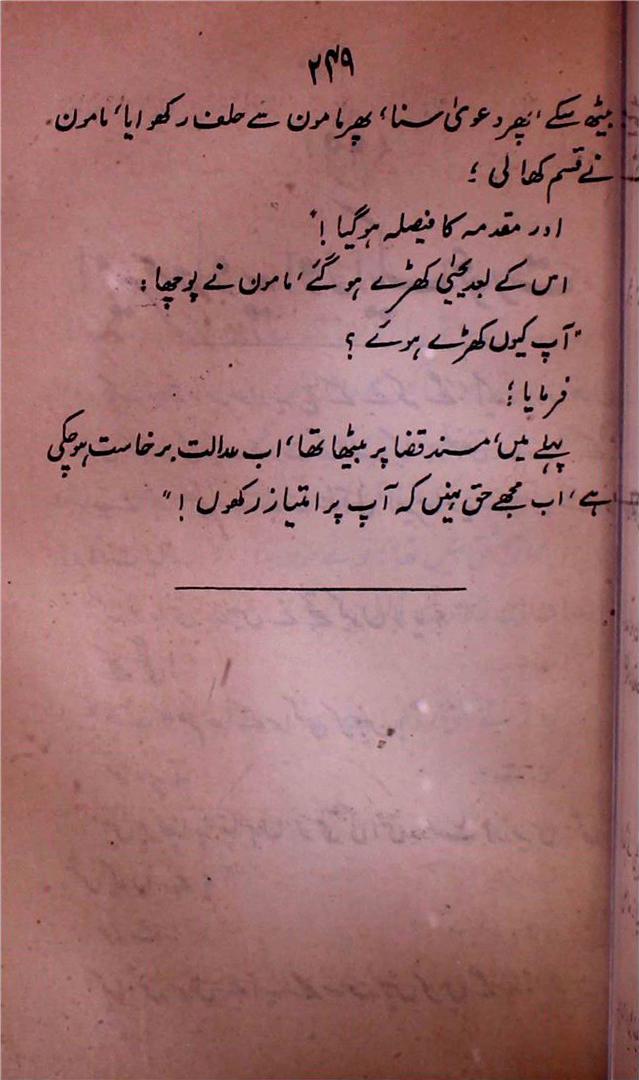 ۲۴۹
بیٹھ سکے، پھر دعویٰ سنا، پھر مامون سے حلف رکھوایا، مامون
نے قسم کھالی ؛
اور مقدمہ کا فیصلہ ہوگیا !"
اس کے بعد یحیٰی کھڑے ہو گئے، مامون نے پوچھا :
"آپ کیوں کھڑے ہوئے ؟
فرمایا ؛
پہلے میں، مسند قضا پر بیٹھا تھا، اب عدالت برخاست ہوچکی
ہے، اب مجھے حق نہیں کہ آپ پر امتیاز رکھوں !"